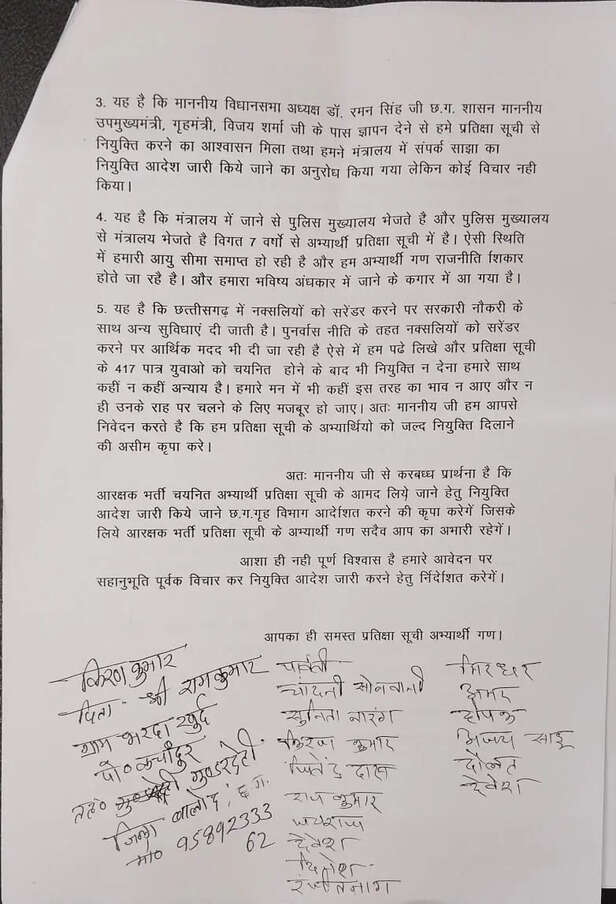 3. यह है कि माननीय विधानसभा अध्यक्ष डॉ. रमन सिंह जी छ.ग. शासन माननीय
उपमुख्यमंत्री, गृहमंत्री, विजय शर्मा जी के पास ज्ञापन देने से हमे प्रतिक्षा सूची से
नियुक्ति करने का आश्वासन मिला तथा हमने मंत्रालय में संपर्क साझा का
नियुक्ति आदेश जारी किये जाने का अनुरोध किया गया लेकिन कोई विचार नही
किया।
4. यह है कि मंत्रालय में जाने से पुलिस मुख्यालय भेजते है और पुलिस मुख्यालय
से मंत्रालय भेजते है विगत 7 वर्षो से अभ्यार्थी प्रतिक्षा सूची में है। ऐसी स्थिति
में हमारी आयु सीमा समाप्त हो रही है और हम अभ्यार्थी गण राजनीति शिकार
होते जा रहै है। और हमारा भविष्य अंधकार में जाने के कगार में आ गया है।
5. यह है कि छत्तीसगढ़ में नक्सलियों को सरेंडर करने पर सरकारी नौकरी के
साथ अन्य सुविधाएं दी जाती है। पुनर्वास नीति के तहत नक्सलियों को सरेंडर
करने पर आर्थिक मदद भी दी जा रही है ऐसे में हम पढे लिखे और प्रतिक्षा सूची
के 417 पात्र युवाओ को चयनित होने के बाद भी नियुक्ति न देना हमारे साथ
कहीं न कहीं अन्याय है। हमारे मन में भी कहीं इस तरह का भाव न आए और न
ही उनके राह पर चलने के लिए मजबूर हो जाए। अतः माननीय जी हम आपसे
निवेदन करते है कि हम प्रतिक्षा सूची के अभ्यार्थियो को जल्द नियुक्ति दिलाने
की असीम कृपा करे।
अतः माननीय जी से करबध्ध प्रार्थना है कि
आरक्षक भर्ती चयनित अभ्यार्थी प्रतिक्षा सूची के आमद लिये जाने हेतु नियुक्ति
आदेश जारी किये जाने छ.ग.गृह विभाग आदेशित करने की कृपा करेगें जिसके
लिये आरक्षक भर्ती प्रतिक्षा सूची के अभ्यार्थी गण सदैव आप का अभारी रहेगें।
आशा ही नही पूर्ण विश्वास है हमारे आवेदन पर
सहानुभूति पूर्वक विचार कर नियुक्ति आदेश जारी करने हेतु निर्देशित करेगें।
आपका ही समस्त प्रतिक्षा सूची अभ्यार्थी गण।
किरण कुमार
पिता- श्री रामकुमार
ग्राम भरदा खुर्द
पो० कचांदुर
तह० गुण्डरदेही
जिला बालोद, छ.ग.
मो० 95892333
62
पार्वती
चांदनी सोनवानी
सुनिता नारंग
किरण कुमार
जितेंद्र दास
राज कुमार
जयराज
देवेश
रंजीत नाग
गिरधर
अमर
दीपक
विजय साहू
दौलत
देवेश